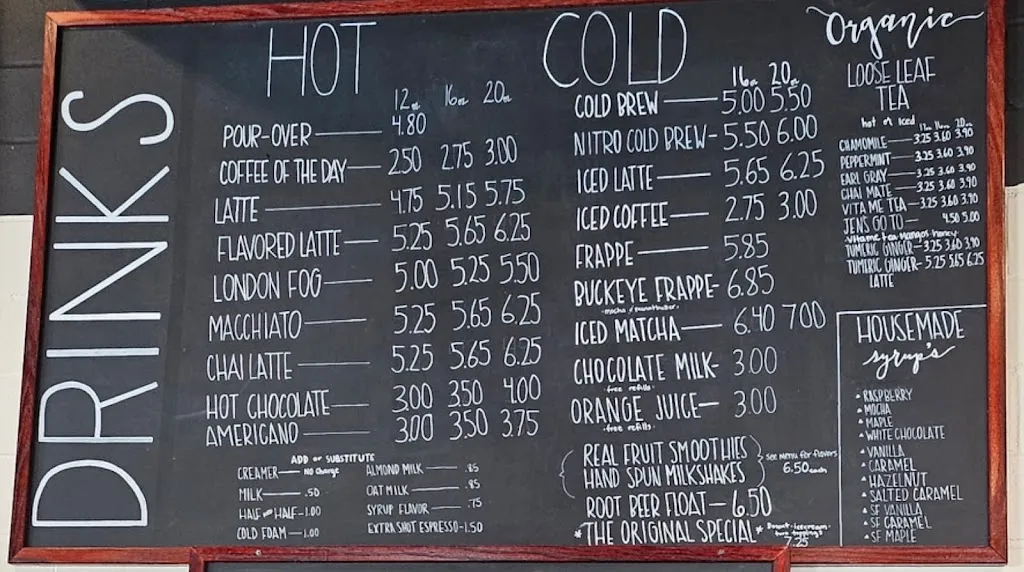 DRINKS
HOT
12oz 16oz 20oz
POUR-OVER — 4.80
COFFEE OF THE DAY — 2.50 2.75 3.00
LATTE — 4.75 5.15 5.75
FLAVORED LATTE — 5.25 5.65 6.25
LONDON FOG — 5.00 5.25 5.50
MACCHIATO — 5.25 5.65 6.25
CHAI LATTE — 5.25 5.65 6.25
HOT CHOCOLATE — 3.00 3.50 4.00
AMERICANO — 3.00 3.50 3.75
ADD or SUBSTITUTE
CREAMER — No Charge
MILK — .50
HALF and HALF - 1.00
COLD FOAM — 1.00
ALMOND MILK — .85
OAT MILK — .85
SYRUP FLAVOR — .75
EXTRA SHOT ESPRESSO - 1.50
COLD
16oz 20oz
COLD BREW — 5.00 5.50
NITRO COLD BREW - 5.50 6.00
ICED LATTE — 5.65 6.25
ICED COFFEE — 2.75 3.00
FRAPPE — 5.85
BUCKEYE FRAPPE - 6.85
mocha / peanut butter
ICED MATCHA — 6.40 7.00
CHOCOLATE MILK - 3.00
-free refills-
ORANGE JUICE — 3.00
-free refills-
REAL FRUIT SMOOTHIES
HAND SPUN MILKSHAKES
see menu for flavors
6.50 each
ROOT BEER FLOAT — 6.50
*THE ORIGINAL SPECIAL*
7.25
Organic
LOOSE LEAF
TEA
hot or iced
12oz 16oz 20oz
CHAMOMILE — 3.25 3.60 3.90
PEPPERMINT — 3.25 3.60 3.90
EARL GRAY — 3.25 3.60 3.90
CHAI MATE — 3.25 3.60 3.90
VITA ME TEA — 3.25 3.60 3.90
JENS GO TO — 4.50 5.00
TUMERIC GINGER — 3.25 3.60 3.90
TUMERIC GINGER - 5.25 5.65 6.25
LATTE
HOUSEMADE
syrup's
RASPBERRY
MOCHA
MAPLE
WHITE CHOCOLATE
VANILLA
CARAMEL
HAZELNUT
SALTED CARAMEL
SF VANILLA
SF CARAMEL
SF MAPLE